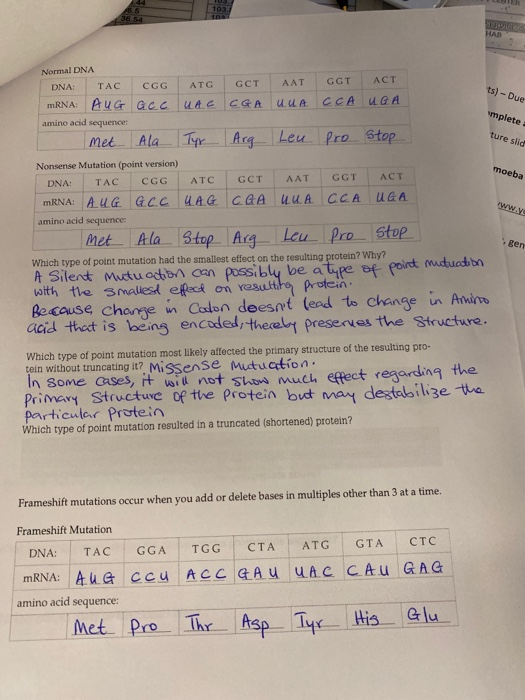 36.54
103.
HAB
ts) - Due
mplete
ture slid
moeba
www.y
gen
Normal DNA
DNA: TAC CGG ATG GCT AAT GGT ACT
mRNA: AUG GCC UAC CGA UUA CCA UGA
amino acid sequence:
Met Ala Tyr Arg Leu Pro Stop
Nonsense Mutation (point version)
DNA: TAC CGG ATC GCT AAT GGT ACT
mRNA: AUG GCC UAG CGA UUA CCA UGA
amino acid sequence:
Met Ala Stop Arg Leu Pro Stop
Which type of point mutation had the smallest effect on the resulting protein? Why?
A Silent mutuation can possibly be a type of point mutuation
with the smallest effect on resulting Protein.
Because change in Codon doesn't lead to change in Amino
acid that is being encoded, thereby preserves the Structure.
Which type of point mutation most likely affected the primary structure of the resulting pro-
tein without truncating it? Missense Mutuation.
In some cases, it will not show much effect regarding the
Primary Structure of the Protein but may destabilize the
particular Protein
Which type of point mutation resulted in a truncated (shortened) protein?
Frameshift mutations occur when you add or delete bases in multiples other than 3 at a time.
Frameshift Mutation
DNA: TAC GGA TGG CTA ATG GTA CTC
mRNA: AUG CCU ACC GAU UAC CAU GAG
amino acid sequence:
Met Pro Thr Asp Tyr His Glu